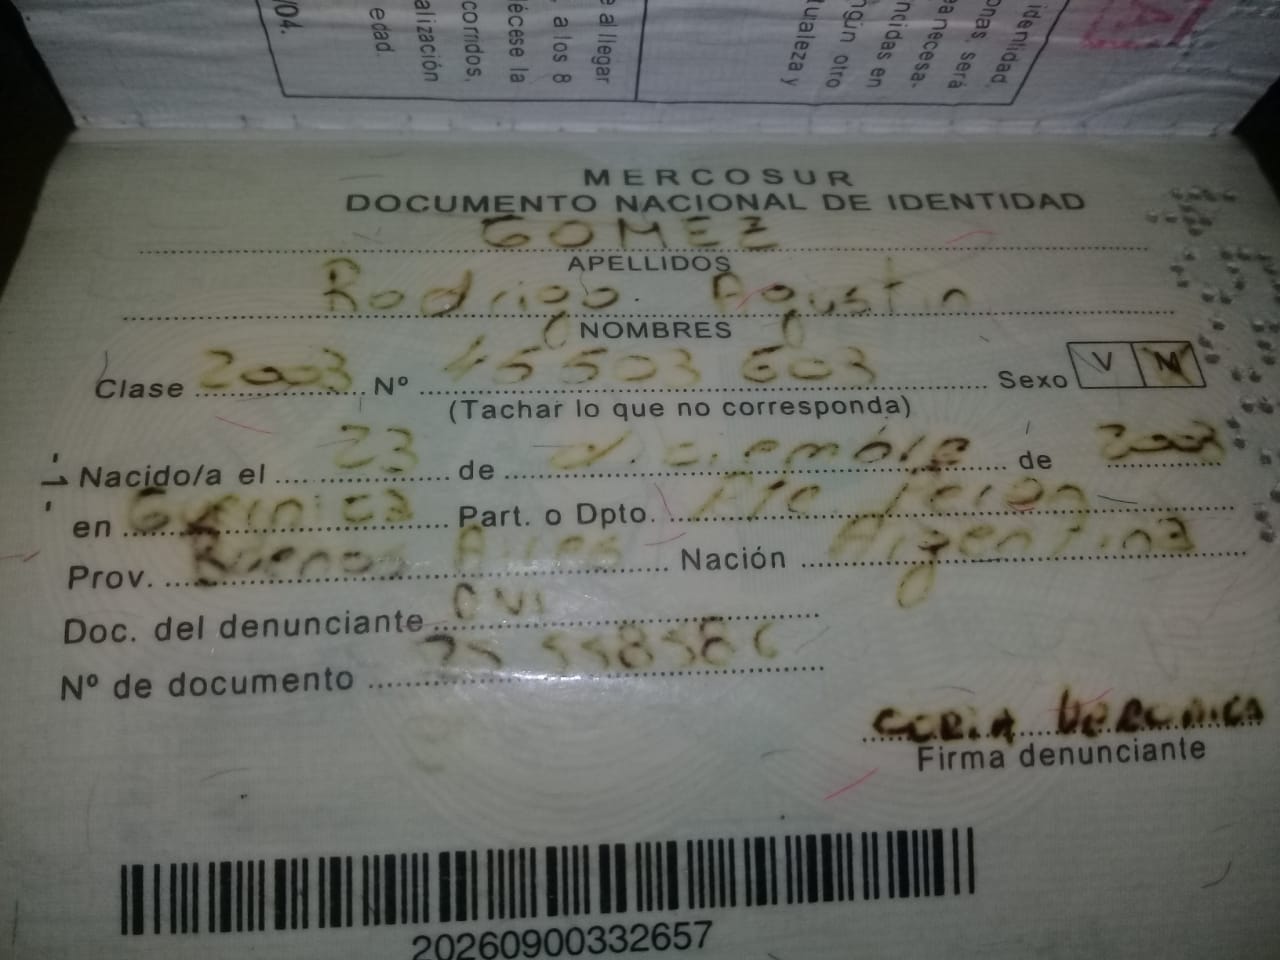 identidad
onas será
ea necesa-
ncidas en
ngún otro
tualeza y
e al llegar
, a los 8
lécese la
corridos,
alización
edad.
/04.
MERCOSUR
DOCUMENTO NACIONAL DE IDENTIDAD
GOMEZ
APELLIDOS
Rodrigo Agustin
NOMBRES
Clase 2003 Nº 45 503 603 Sexo V M
(Tachar lo que no corresponda)
Nacido/a el 23 de diciembre de 2003
en Guernica Part. o Dpto. Pte Peron
Prov. Buenos Aires Nación Argentina
Doc. del denunciante
Nº de documento
CORIA VERONICA
Firma denunciante
- 1 -
20260900332657